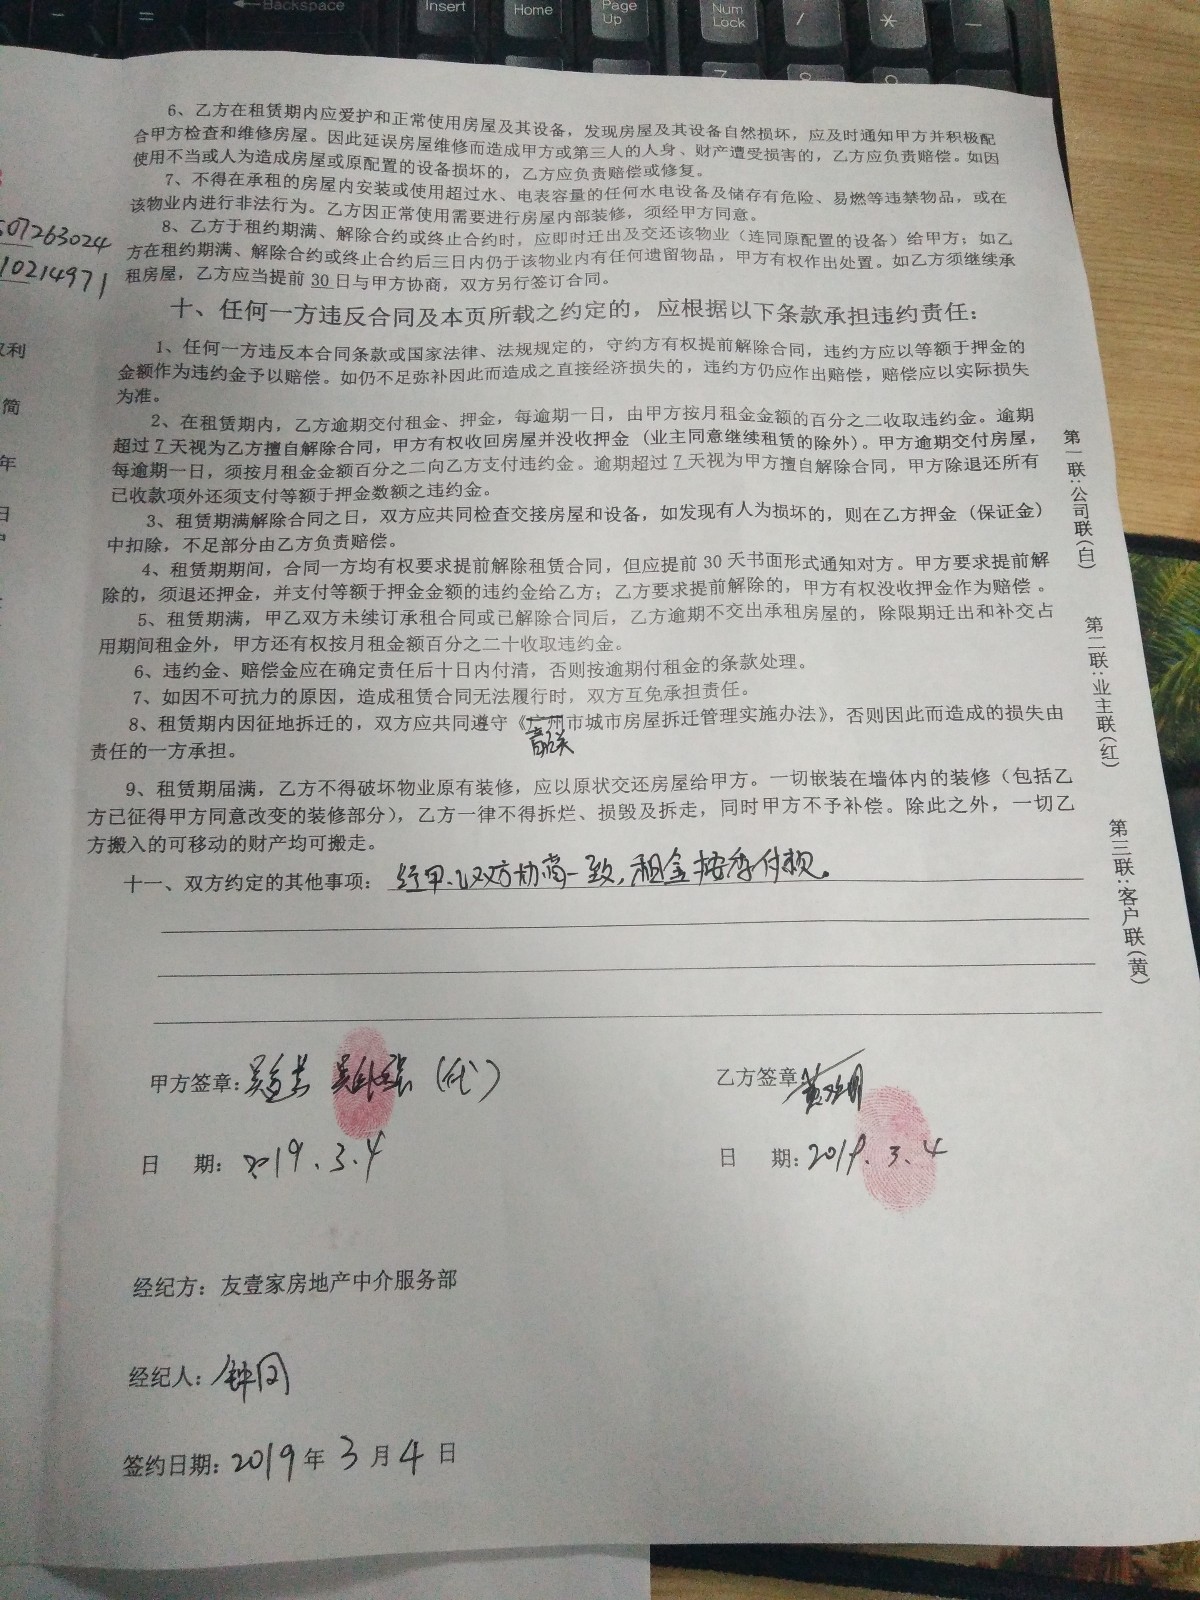 Backspace
Insert
Home
Page Up
Num Lock
/
*
-
6、乙方在租赁期内应爱护和正常使用房屋及其设备，发现房屋及其设备自然损坏，应及时通知甲方并积极配
合甲方检查和维修房屋。因此延误房屋维修而造成甲方或第三人的人身、财产遭受损害的，乙方应负责赔偿。如因
使用不当或人为造成房屋或原配置的设备损坏的，乙方应负责赔偿或修复。
7、不得在承租的房屋内安装或使用超过水、电表容量的任何水电设备及储存有危险、易燃等违禁物品，或在
该物业内进行非法行为。乙方因正常使用需要进行房屋内部装修，须经甲方同意。
8、乙方于租约期满、解除合约或终止合约时，应即时迁出及交还该物业（连同原配置的设备）给甲方；如乙
方在租约期满、解除合约或终止合约后三日内仍于该物业内有任何遗留物品，甲方有权作出处置。如乙方须继续承
租房屋，乙方应当提前 30 日与甲方协商，双方另行签订合同。
07263024
10214971
十、任何一方违反合同及本页所载之约定的，应根据以下条款承担违约责任：
1、任何一方违反本合同条款或国家法律、法规规定的，守约方有权提前解除合同，违约方应以等额于押金的
金额作为违约金予以赔偿。如仍不足弥补因此而造成之直接经济损失的，违约方仍应作出赔偿，赔偿应以实际损失
为准。
2、在租赁期内，乙方逾期交付租金、押金，每逾期一日，由甲方按月租金金额的百分之二收取违约金。逾期
超过 7 天视为乙方擅自解除合同，甲方有权收回房屋并没收押金（业主同意继续租赁的除外）。甲方逾期交付房屋，
每逾期一日，须按月租金金额百分之二向乙方支付违约金。逾期超过 7 天视为甲方擅自解除合同，甲方除退还所有
已收款项外还须支付等额于押金数额之违约金。
3、租赁期满解除合同之日，双方应共同检查交接房屋和设备，如发现有人为损坏的，则在乙方押金（保证金）
中扣除，不足部分由乙方负责赔偿。
4、租赁期期间，合同一方均有权要求提前解除租赁合同，但应提前 30 天书面形式通知对方。甲方要求提前解
除的，须退还押金，并支付等额于押金金额的违约金给乙方；乙方要求提前解除的，甲方有权没收押金作为赔偿 。
5、租赁期满，甲乙双方未续订承租合同或已解除合同后，乙方逾期不交出承租房屋的，除限期迁出和补交占
用期间租金外，甲方还有权按月租金额百分之二十收取违约金。
6、违约金、赔偿金应在确定责任后十日内付清，否则按逾期付租金的条款处理。
7、如因不可抗力的原因，造成租赁合同无法履行时，双方互免承担责任。
8、租赁期内因征地拆迁的，双方应共同遵守《广州市城市房屋拆迁管理实施办法》，否则因此而造成的损失由
韶关
责任的一方承担。
9、租赁期届满，乙方不得破坏物业原有装修，应以原状交还房屋给甲方。一切嵌装在墙体内的装修（包括乙
方已征得甲方同意改变的装修部分），乙方一律不得拆烂、损毁及拆走，同时甲方不予补偿。除此之外，一切乙
方搬入的可移动的财产均可搬走。
十一、双方约定的其他事项：经甲、乙双方协商一致，租金按季付款。
第一联：公司联（白）
第二联：业主联（红）
第三联：客户联（黄）
甲方签章：（代）
乙方签章
日 期：2019.3.4
日 期：2019.3.4
经纪方：友壹家房地产中介服务部
经纪人：钟
签约日期：2019年3月4日